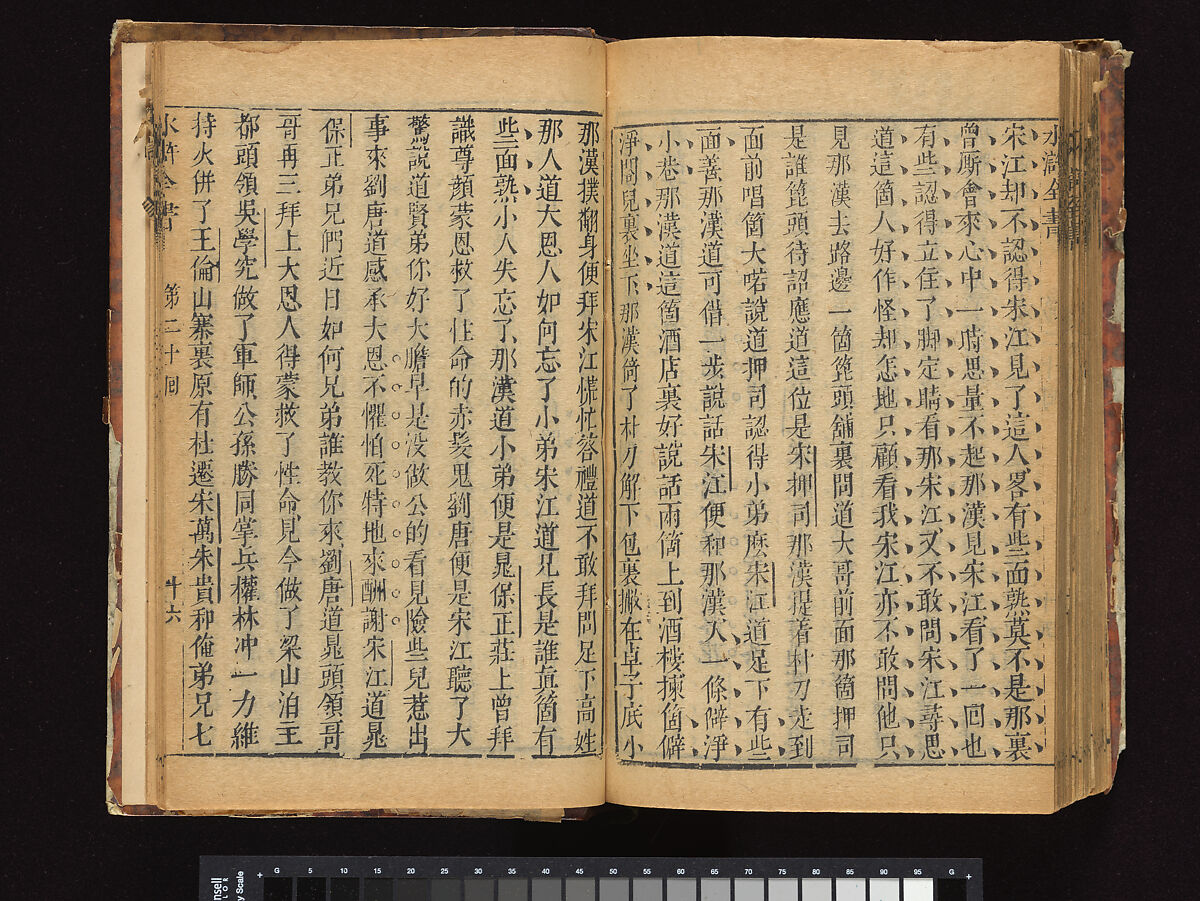 水滸全書
宋江却不認得宋江見了這人畧有些面熟莫不是那裏
曾厮會來心中一時思量不起那漢見宋江看了一回也
有些認得立住了脚定睛看那宋江又不敢問宋江尋思
道這箇人好作怪却怎地只顧看我宋江亦不敢問他只
見那漢去路邊一箇篦頭舖裏問道大哥前面那箇押司
是誰篦頭待詔應道這位是宋押司那漢提着朴刀走到
面前唱箇大喏說道押司認得小弟麽宋江道足下有些
面善那漢道可借一步說話宋江便和那漢入一條僻淨
小巷那漢道這箇酒店裏好說話兩箇上到酒樓揀箇僻
淨閣兒裏坐下那漢倚了朴刀解下包裹撇在卓子底下
那漢撲翻身便拜宋江慌忙答禮道不敢拜問足下高姓
那人道大恩人如何忘了小弟宋江道兄長是誰真箇有
些面熟小人失忘了那漢道小弟便是晁保正莊上曾拜
識尊顔蒙恩救了性命的赤髮鬼劉唐便是宋江聽了大
驚說道賢弟你好大膽早是没做公的看見險些兒惹出
事來劉唐道感承大恩不懼怕死特地來酬謝宋江道晁
保正弟兄們近日如何兄弟誰教你來劉唐道晁頭領哥
哥再三拜上大恩人得蒙救了性命見今做了梁山泊主
都頭領吳學究做了軍師公孫勝同掌兵權林冲一力維
持火併了王倫山寨裏原有杜遷宋萬朱貴和俺弟兄七
水滸全書 第二十回 十六
5 10 15 20 25 30 35 40 45 50 55 60 65 70 75 80 85 90 95